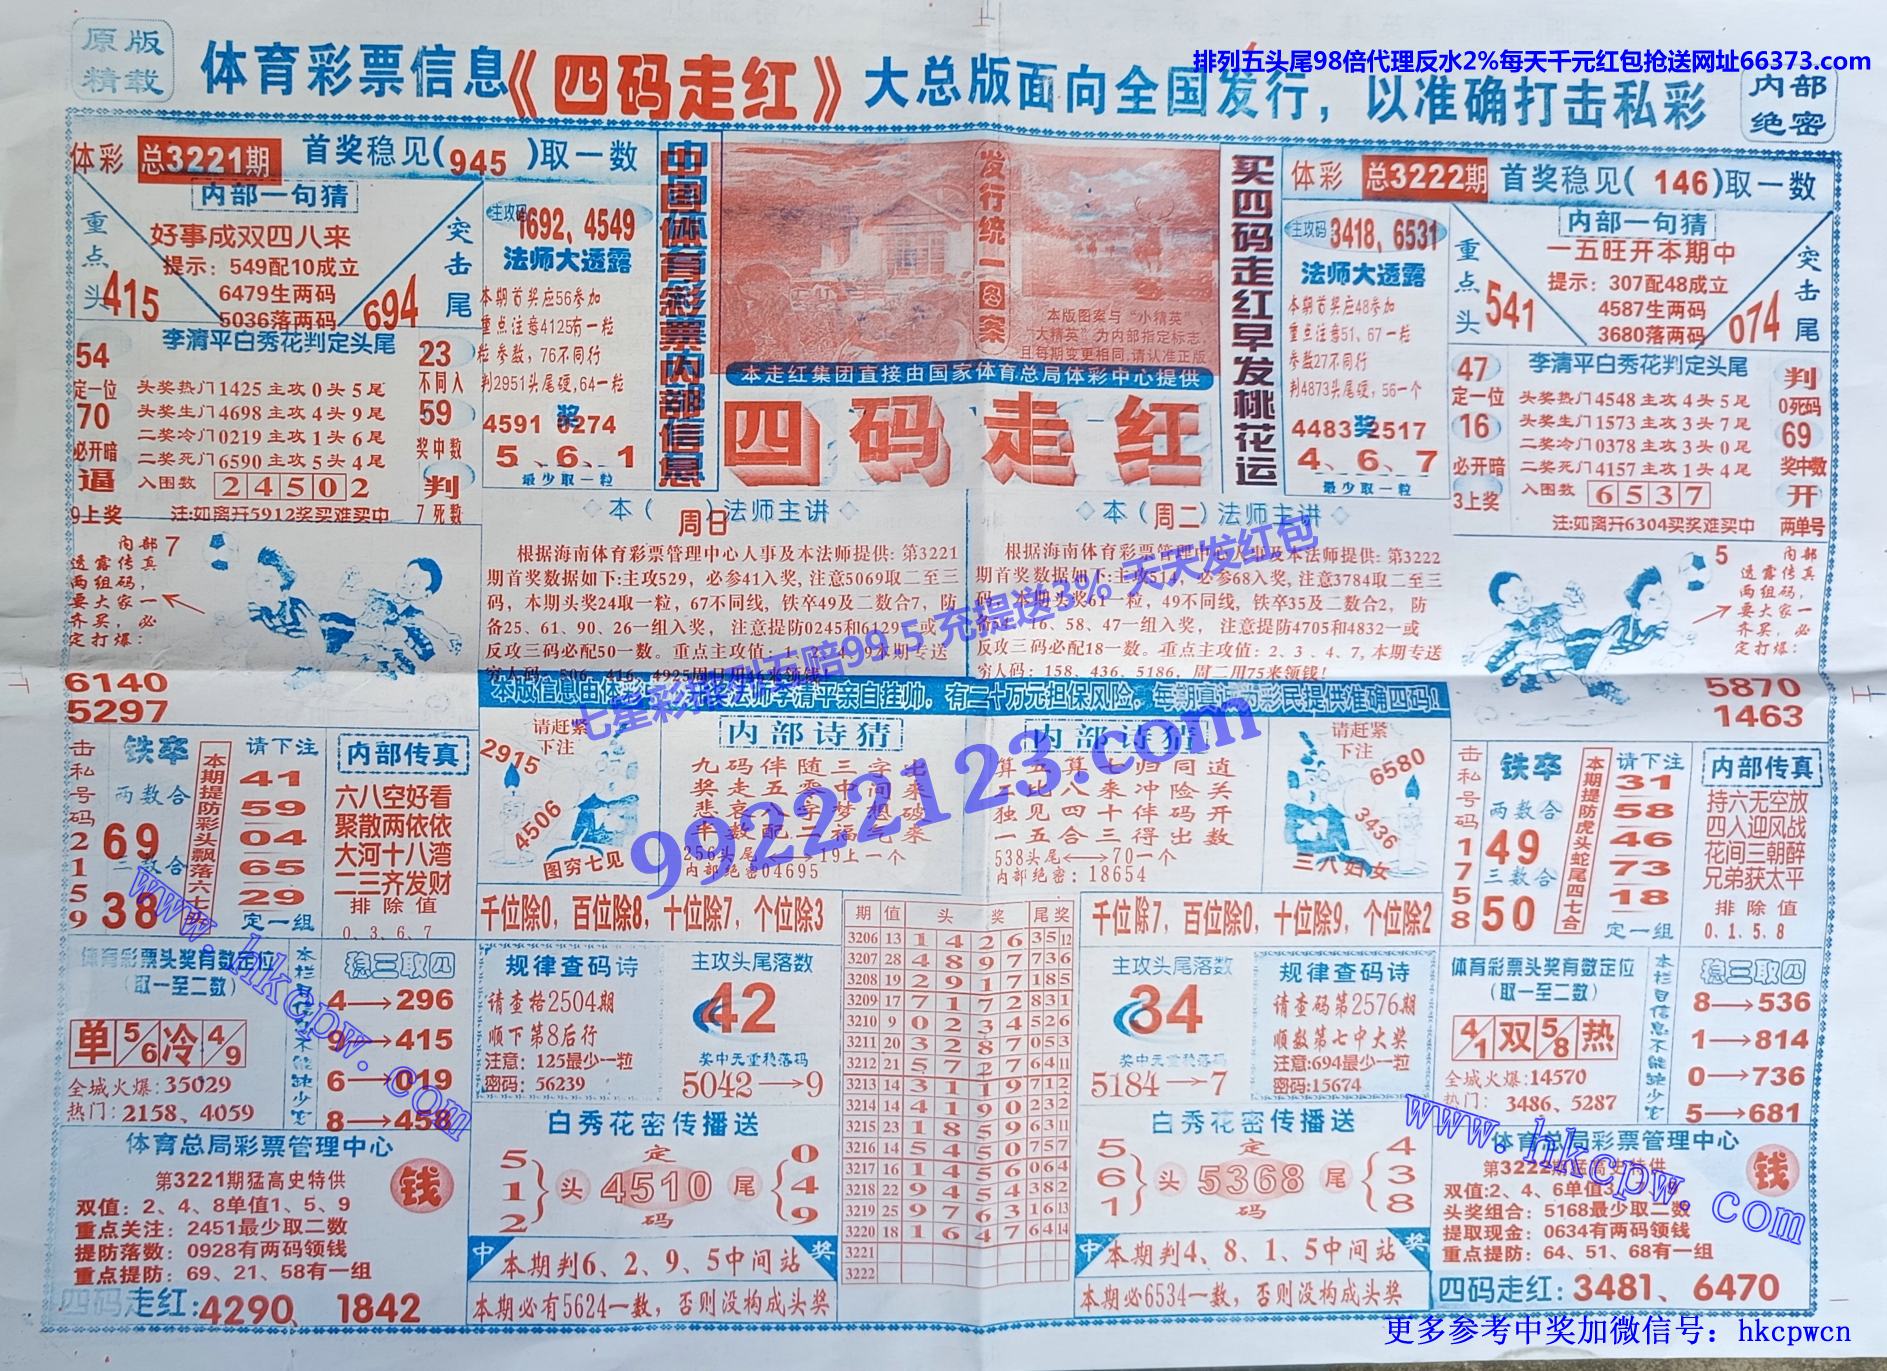 原版
精载
体育彩票信息《四码走红》大总版面向全国发行，以准确打击私彩
排列五头尾98倍代理反水2%每天千元红包抢送网址66373.com
内部
绝密
体彩 总3221期 首奖稳见(945)取一数
内部一句猜
好事成双四八来
提示：549配10成立
6479生两码
5036落两码
重点头
415
突击尾
694
主攻码
1692、4549
法师大透露
本期首奖应56参加
重点注意4125有一粒
粒参数，76不同行
判2951头尾硬,64一粒
4591奖0274
5、6、1
最少取一粒
李清平白秀花判定头尾
54
定一位
70
必开暗
逼
9上奖
头奖热门1425主攻0头5尾
头奖生门4698主攻4头9尾
二奖冷门0219主攻1头6尾
二奖死门6590主攻5头4尾
入围数 24502
注:如离开5912奖买难买中
23
不同入
59
奖中数
判
7死数
中国体育彩票内部信息
发行统一图案
本版图案与“小精英”
“大精英”为内部指定标志
且每期变更相同,请认准正版
本走红集团直接由国家体育总局体彩中心提供
四码走红
买四码走红早发桃花运
体彩 总3222期 首奖稳见(146)取一数
主攻码
3418、6531
法师大透露
本期首奖应48参加
重点注意51、67一粒
参数27不同行
判4873头尾硬，56一个
4483奖2517
4、6、7
最少取一粒
内部一句猜
一五旺开本期中
提示：307配48成立
4587生两码
3680落两码
重点头
541
突击尾
074
李清平白秀花判定头尾
47
定一位
16
必开暗
3上奖
头奖热门4548主攻4头5尾
头奖生门1573主攻3头7尾
二奖冷门0378主攻3头0尾
二奖死门4157主攻1头4尾
入围数 6537
注:如离开6304买奖难买中
判
0死码
69
奖中数
开
两单号
内部7
透露传真
两组码，
要大家一
齐买，必
定打爆：
6140
5297
本（周日）法师主讲
根据海南体育彩票管理中心人事及本法师提供：第3221
期首奖数据如下:主攻529，必参41入奖,注意5069取二至三
码，本期头奖24取一粒，67不同线，铁卒49及二数合7，防
备25、61、90、26一组入奖， 注意提防0245和6129一或
反攻三码必配50一数。重点主攻值：1、2、4、9本期专送
穷人码：506、416、4925周日用46来领钱！
本（周二）法师主讲
根据海南体育彩票管理中心人事及本法师提供:第3222
期首奖数据如下:主攻514，必参68入奖,注意3784取二至三
码，本期头奖61一粒，49不同线，铁卒35及二数合2，防
16、58、47一组入奖， 注意提防4705和4832一或
反攻三码必配18一数。重点主攻值：2、3、4、7,本期专送
穷人码：158、436、5186，周二用75来领钱！
5
内部
透露传真
两组码，
要大家一
齐买，必
定打爆：
5870
1463
七星彩排列五赔99.5 充提送3% 天天发红包
99222123.com
击私号码21589
铁卒
两数合
69
三数合
38
本期提防彩头飘落六七数
请下注
41
59
04
65
29
定一组
内部传真
六八空好看
聚散两依依
大河十八湾
二三齐发财
排除值
0、3、6、7
请赶紧
下注
2915
4506
图穷七见
内部诗猜
九码伴随三字出
奖走五零中间来
悲哀八字梦想破
半数配二福气来
256头尾⟷19上一个
内部绝密04695
内部诗猜
算五算七归同道
三比八来冲险关
独见四十伴码开
一五合三得出数
538头尾⟷70一个
内部绝密：18654
请赶紧
下注
6580
3436
三八妇女
击私号码17358
铁卒
两数合
49
三数合
50
本期提防虎头蛇尾四七合
请下注
31
58
46
73
18
定一组
内部传真
持六无空放
四入迎风战
花间三朝醉
兄弟获太平
排除值
0、1、5、8
千位除0，百位除8，十位除7，个位除3
千位除7，百位除0，十位除9，个位除2
体育彩票头奖有数定位
（取一至二数）
单 5/6 冷 4/9
全城火爆：35029
热门：2158、4059
稳三取四
4→296
9→415
6→019
8→458
规律查码诗
请查格2504期
顺下第8后行
注意：125最少一粒
密码：56239
主攻头尾落数
42
奖中无重称落码
5042→9
期 值 头 奖 尾奖
3206 13 1 4 2 6 35 12
3207 28 4 8 9 7 736
3208 19 2 9 1 7 185
3209 17 7 1 7 2 831
3210 9 0 2 3 4 526
3211 20 3 2 8 7 053
3212 21 5 7 2 7 64 11
3213 14 3 1 1 9 712
3214 14 4 1 9 0 232
3215 23 1 8 5 9 63 11
3216 14 5 4 5 0 757
3217 16 1 4 5 6 064
3218 22 9 4 5 4 382
3219 25 9 7 6 3 16 13
3220 18 1 6 4 7 64 14
3221
3222
主攻头尾落数
34
奖中无重称落码
5184→7
规律查码诗
请查码第2576期
顺数第七中大奖
注意:694最少一粒
密码:15674
体育彩票头奖有数定位
（取一至二数）
4/1 双 5/8 热
全城火爆:14570
热门：3486、5287
本栏目信息不能缺少它
稳三取四
8→536
1→814
0→736
5→681
体育总局彩票管理中心
第3221期猛高史特供
钱
双值：2、4、8单值1、5、9
重点关注：2451最少取二数
提防落数：0928有两码领钱
重点提防：69、21、58有一组
四码走红:4290、1842
白秀花密传播送
5 1 2 头 定 4510 码 尾 0 4 9
中 本期判6、2、9、5中间站 奖
本期必有5624一数，否则没构成头奖
白秀花密传播送
5 6 1 头 定 5368 码 尾 4 3 8
中 本期判4、8、1、5中间站 奖
本期必6534一数，否则没构成头奖
体育总局彩票管理中心
第3222期猛高史特供
钱
双值:2、4、6单值3
头奖组合：5168最少取二数
提取现金：0634有两码领钱
重点提防：64、51、68有一组
四码走红：3481、6470
www.hkcpw.com
www.hkcpw.com
更多参考中奖加微信号：hkcpwcn